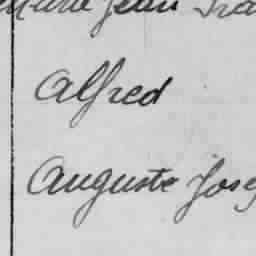 Jean
Alfred
Auguste Jose